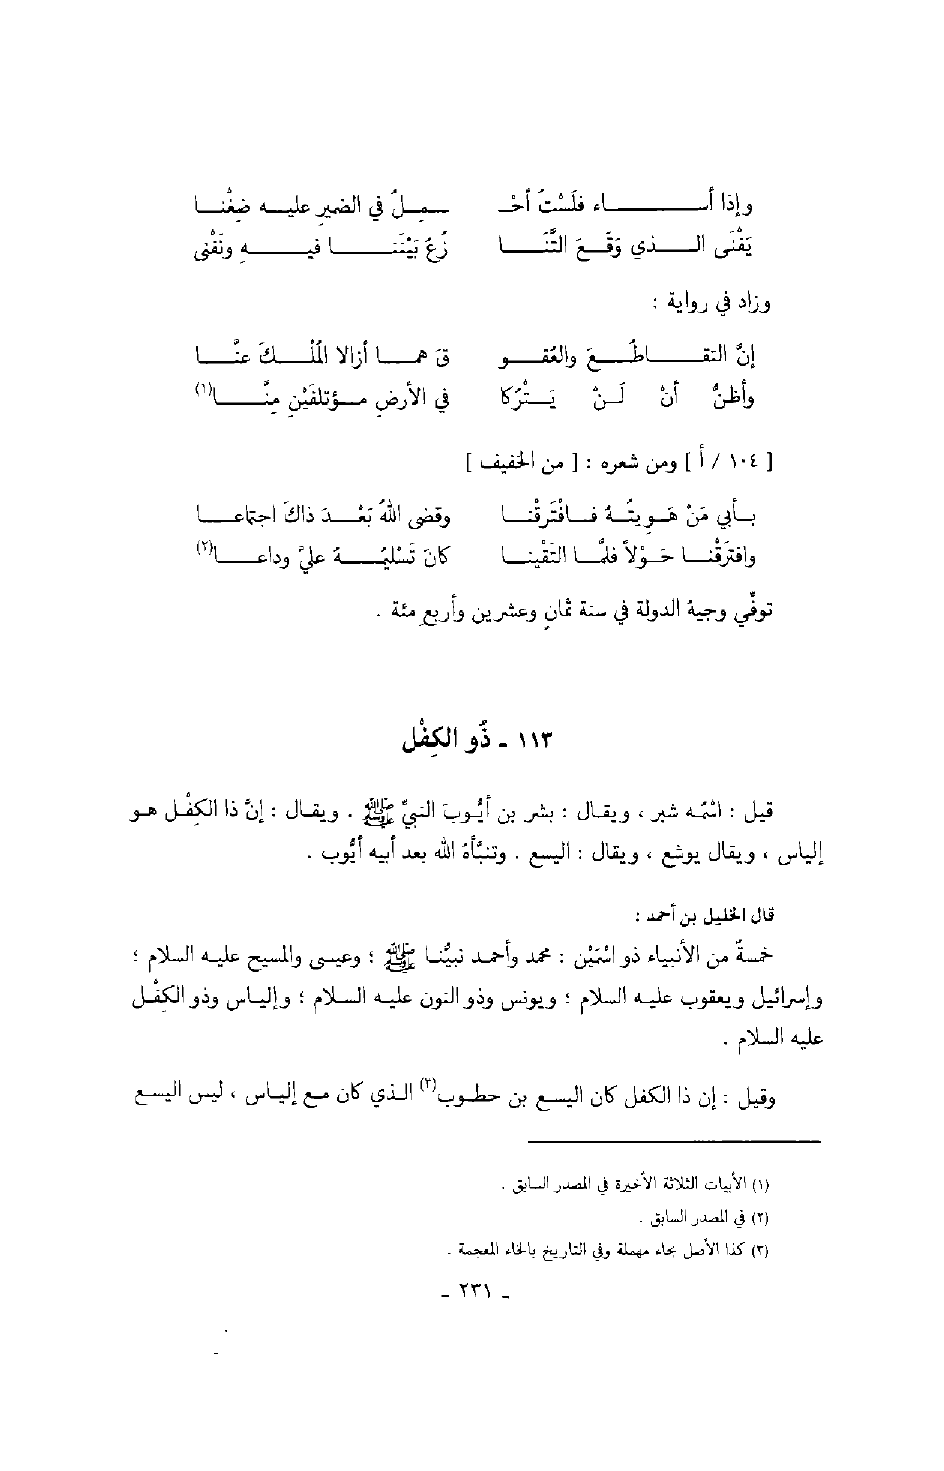 وإذا أساء فلَسْتُ أحْـ ـمِلُ في الضميرِ عليه ضِغْنا
يَفْنَى الذي وَقَعَ التَّنَا زُعُ بَيْنَنَا فيه ونَفْنى
وزاد في رواية :
إنَّ التقاطُعَ والعُقو قَ هما أزالا المُلْكَ عنَّا
وأظنُّ أنْ لَنْ يَتْرُكا في الأرضِ مؤتلفَيْنِ مِنَّا(١)
[ ١٠٤ / أ ] ومن شعره : [ من الخفيف ]
بأبي مَنْ هَوِيتُهُ فافْتَرقْنا وقضى اللهُ بَعْدَ ذاكَ اجتماعا
وافتَرقْنا حَوْلاً فلمَّا التَقَيْنا كانَ تَسْليمُهُ عليَّ وداعا(٢)
توفّي وجيهُ الدولة في سنة ثمانٍ وعشرين وأربع مئة .
١١٣ - ذُو الكِفْل
قيل : اسْمُه شبر ، ويقال : بشر بن أيُّوبَ النبيِّ ﷺ . ويقال : إنَّ ذا الكِفْل هو
إلياس ، ويقال يوشع ، ويقال : اليسع . وتنبَّأهُ الله بعد أبيه أيُّوب .
قال الخليل بن أحمد :
خمسةٌ من الأنبياء ذو اسْمَيْن : محمد وأحمد نبيُّنا ﷺ ؛ وعيسى والمسيح عليه السلام ؛
وإسرائيل ويعقوب عليه السلام ؛ ويونس وذو النون عليه السلام ؛ وإلياس وذو الكفْل
عليه السلام .
وقيل : إن ذا الكفل كان اليسع بن حطوب(٣) الذي كان مع إلياس ، ليس اليسع
(١) الأبيات الثلاثة الأخيرة في المصدر السابق .
(٢) في المصدر السابق .
(٣) كذا الأصل بحاء مهملة وفي التاريخ بالخاء المعجمة .
- ٢٣١ -